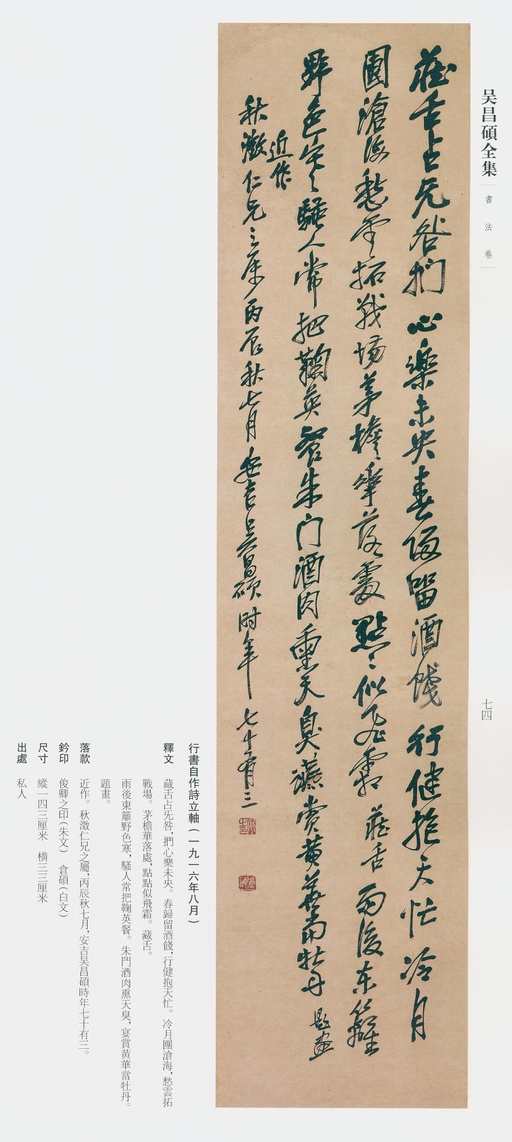 吴昌碩全集
書法卷
七四
藏舌占无咎捫心樂未央春歸留酒餞行健抱天忙冷月
團滄海愁雲拓戰場茅檐華落處點〻似飛霜 藏舌 雨後東籬
野色寒騷人常把鞠英餐朱門酒肉熏天臭宴賞黃華當牡丹 題畫
近作
秋澂仁兄之屬丙辰秋七月安吉吳昌碩時年七十有三
行書自作詩立軸（一九一六年八月）
釋文 藏舌占先咎，捫心樂未央。春歸留酒餞，行健抱天忙。冷月團滄海，愁雲拓
戰場。茅檐華落處，點點似飛霜。藏舌。
雨後東籬野色寒，騷人常把鞠英餐。朱門酒肉熏天臭，宴賞黃華當牡丹。
題畫。
落款 近作。秋澂仁兄之屬，丙辰秋七月，安吉吴昌碩時年七十有三。
鈐印 俊卿之印（朱文） 倉碩（白文）
尺寸 縱一四三厘米 橫三三厘米
出處 私人